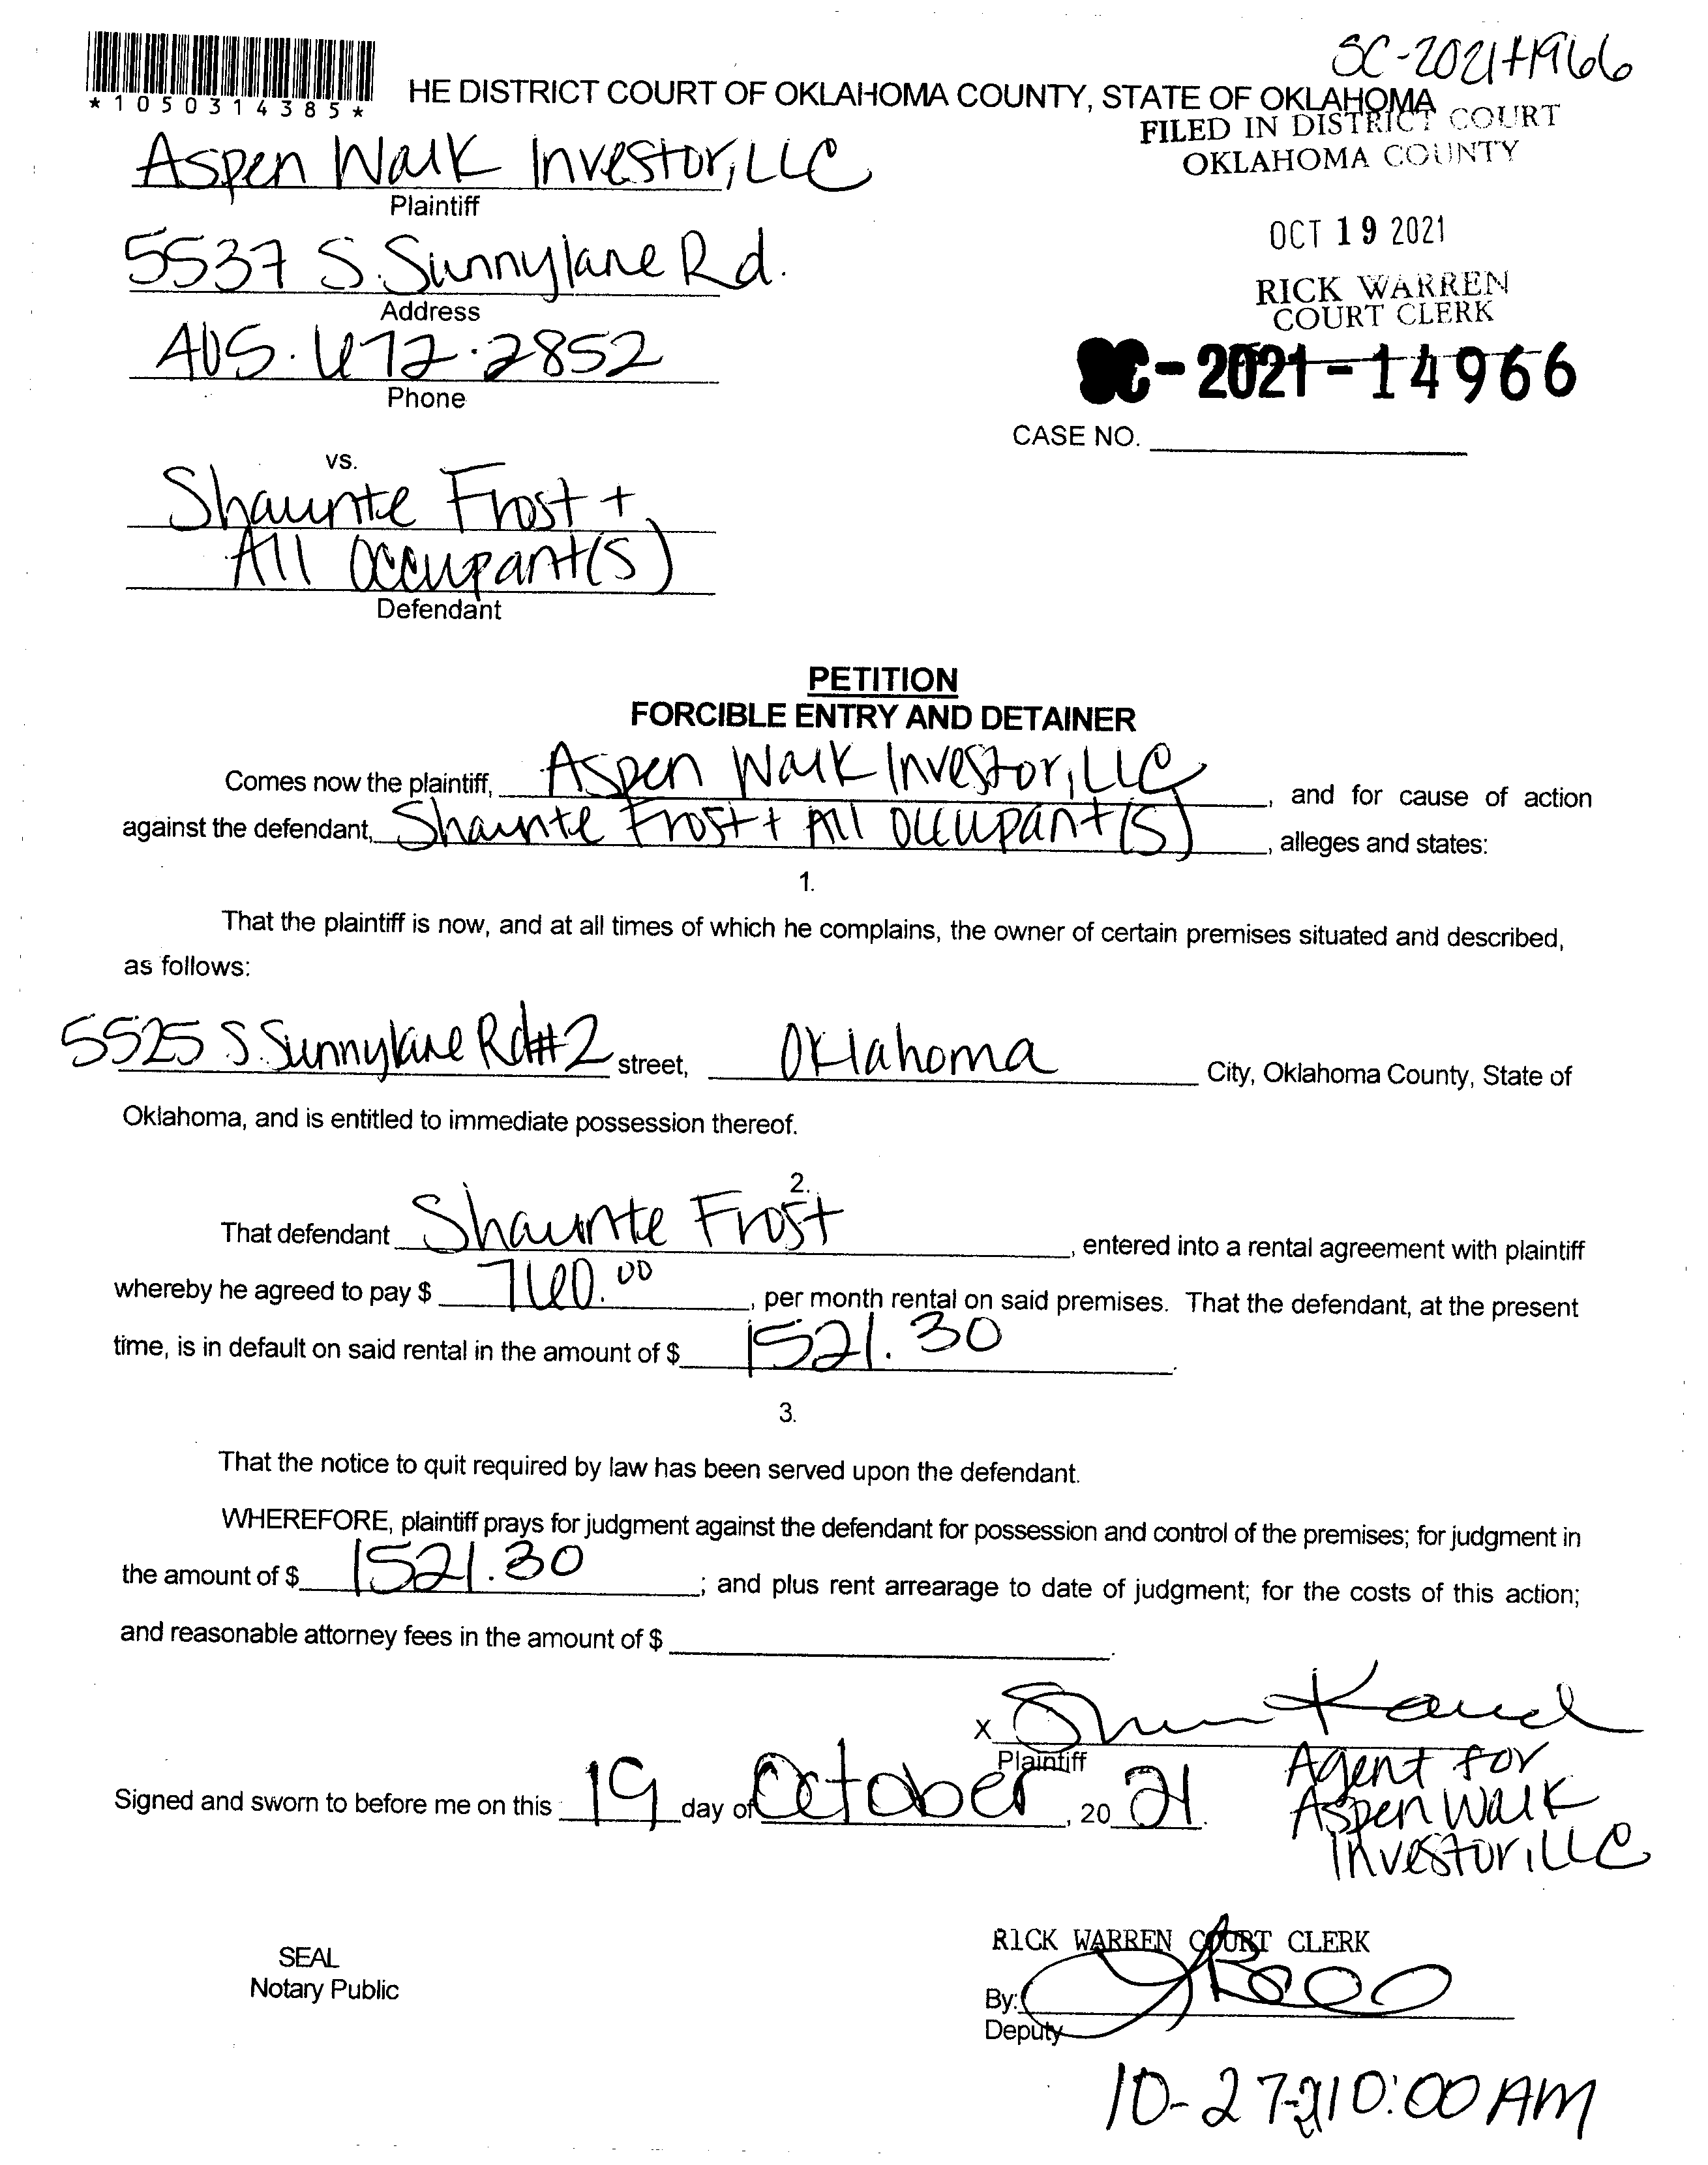 SC-2021-14966
*1050314385*
HE DISTRICT COURT OF OKLAHOMA COUNTY, STATE OF OKLAHOMA
FILED IN DISTRICT COURT
OKLAHOMA COUNTY
Aspen Walk Investor, LLC
Plaintiff
OCT 19 2021
5537 S. Sunnylane Rd.
Address
RICK WARREN
COURT CLERK
405.672.2852
Phone
SC-2021-14966
CASE NO.
vs.
Shaunte Frost +
All Occupant(s)
Defendant
PETITION
FORCIBLE ENTRY AND DETAINER
Comes now the plaintiff, Aspen Walk Investor, LLC, and for cause of action
against the defendant, Shaunte Frost + All Occupant(s), alleges and states:
1.
That the plaintiff is now, and at all times of which he complains, the owner of certain premises situated and described,
as follows:
5525 S. Sunnylane Rd #2 street, Oklahoma City, Oklahoma County, State of
Oklahoma, and is entitled to immediate possession thereof.
2.
That defendant Shaunte Frost, entered into a rental agreement with plaintiff
whereby he agreed to pay $ 760.00, per month rental on said premises. That the defendant, at the present
time, is in default on said rental in the amount of $ 1521.30.
3.
That the notice to quit required by law has been served upon the defendant.
WHEREFORE, plaintiff prays for judgment against the defendant for possession and control of the premises; for judgment in
the amount of $ 1521.30; and plus rent arrearage to date of judgment; for the costs of this action;
and reasonable attorney fees in the amount of $ .
X
Plaintiff
Agent for
Aspen Walk
Investor, LLC
Signed and sworn to before me on this 19 day of October, 20 21.
RICK WARREN COURT CLERK
SEAL
Notary Public
By:
Deputy
10-27-21 10:00 AM